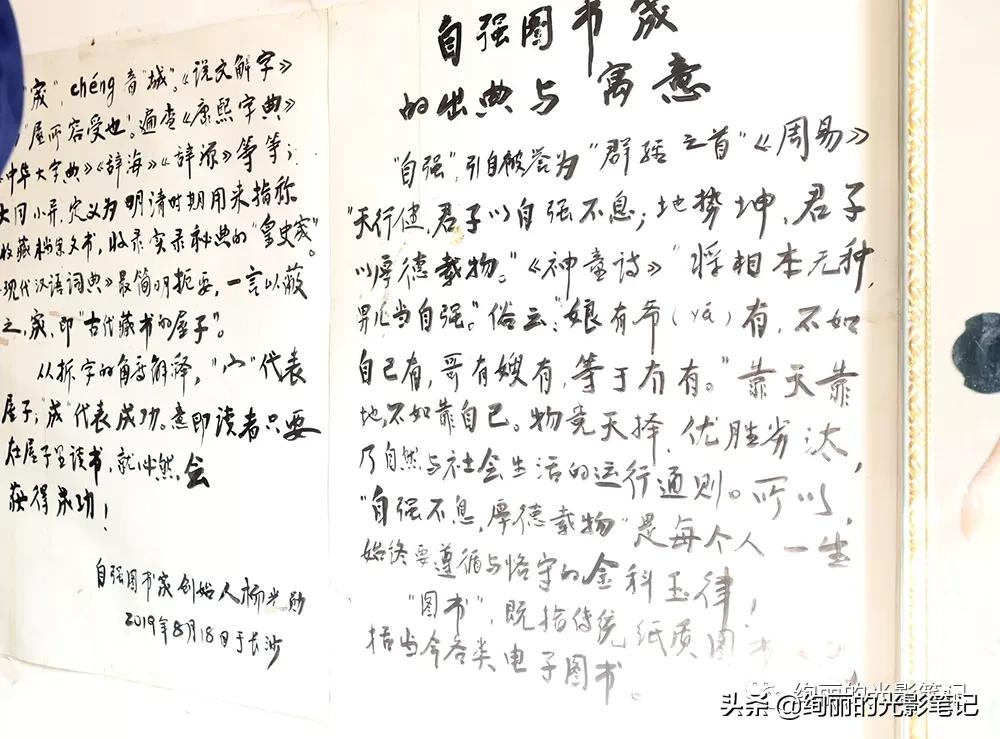 自强图书宬
的出典与寓意
“自强”,引自被誉为“群经之首”《周易》
“天行健,君子以自强不息;地势坤,君子
以厚德载物。”《神童诗》“将相本无种,
男儿当自强。”俗云:“娘有爷(yá)有,不如
自己有,哥有嫂有,等于冇有。”靠天靠
地,不如靠自己。物竞天择,优胜劣汰,
乃自然与社会生活的运行通则。所以,
“自强不息,厚德载物”是每个人一生
始终要遵循与恪守的金科玉律!
“图书”,既指传统纸质图书
括当今各类电子图书。
“宬”,chéng音“城”。《说文解字》
“屋所容受也”。遍查《康熙字典》
《中华大字典》《辞海》《辞源》等等;
大同小异,定义为明清时期用来指称
收藏档案文书,收录实录秘典的“皇史宬”。
《现代汉语词典》最简明扼要,一言以蔽
之,宬,即“古代藏书的屋子”。
从拆字的角度解释,“宀”代表
屋子;“成”代表成功。意即读者只要
在屋子里读书,就必然会
获得成功!
自强图书宬创始人杨光
2019年8月18日于长沙
绚丽的光影笔记
头条@绚丽的光影笔记